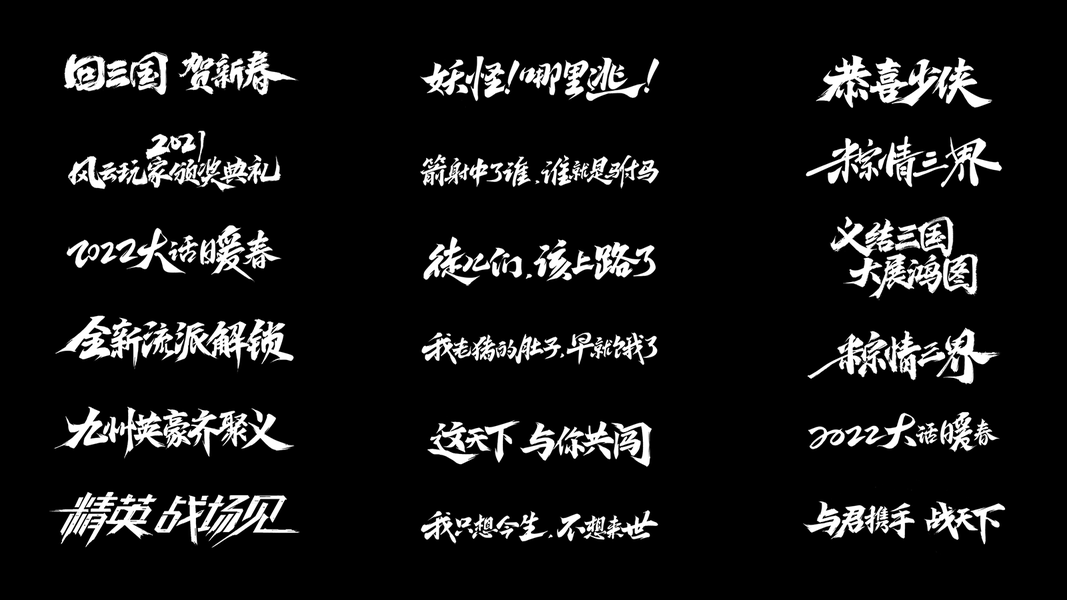 回三国 贺新春
2021
风云玩家颁奖典礼
2022大话暖春
全新流派解锁
九州英豪齐聚义
精英 战场见
妖怪!哪里逃!
箭射中了谁,谁就是驸马
徒儿们,该上路了
我老猪的肚子,早就饿了
这天下 与你共闯
我只想今生,不想来世
恭喜少侠
粽情三界
义结三国
大展鸿图
粽情三界
2022大话暖春
与君携手 战天下